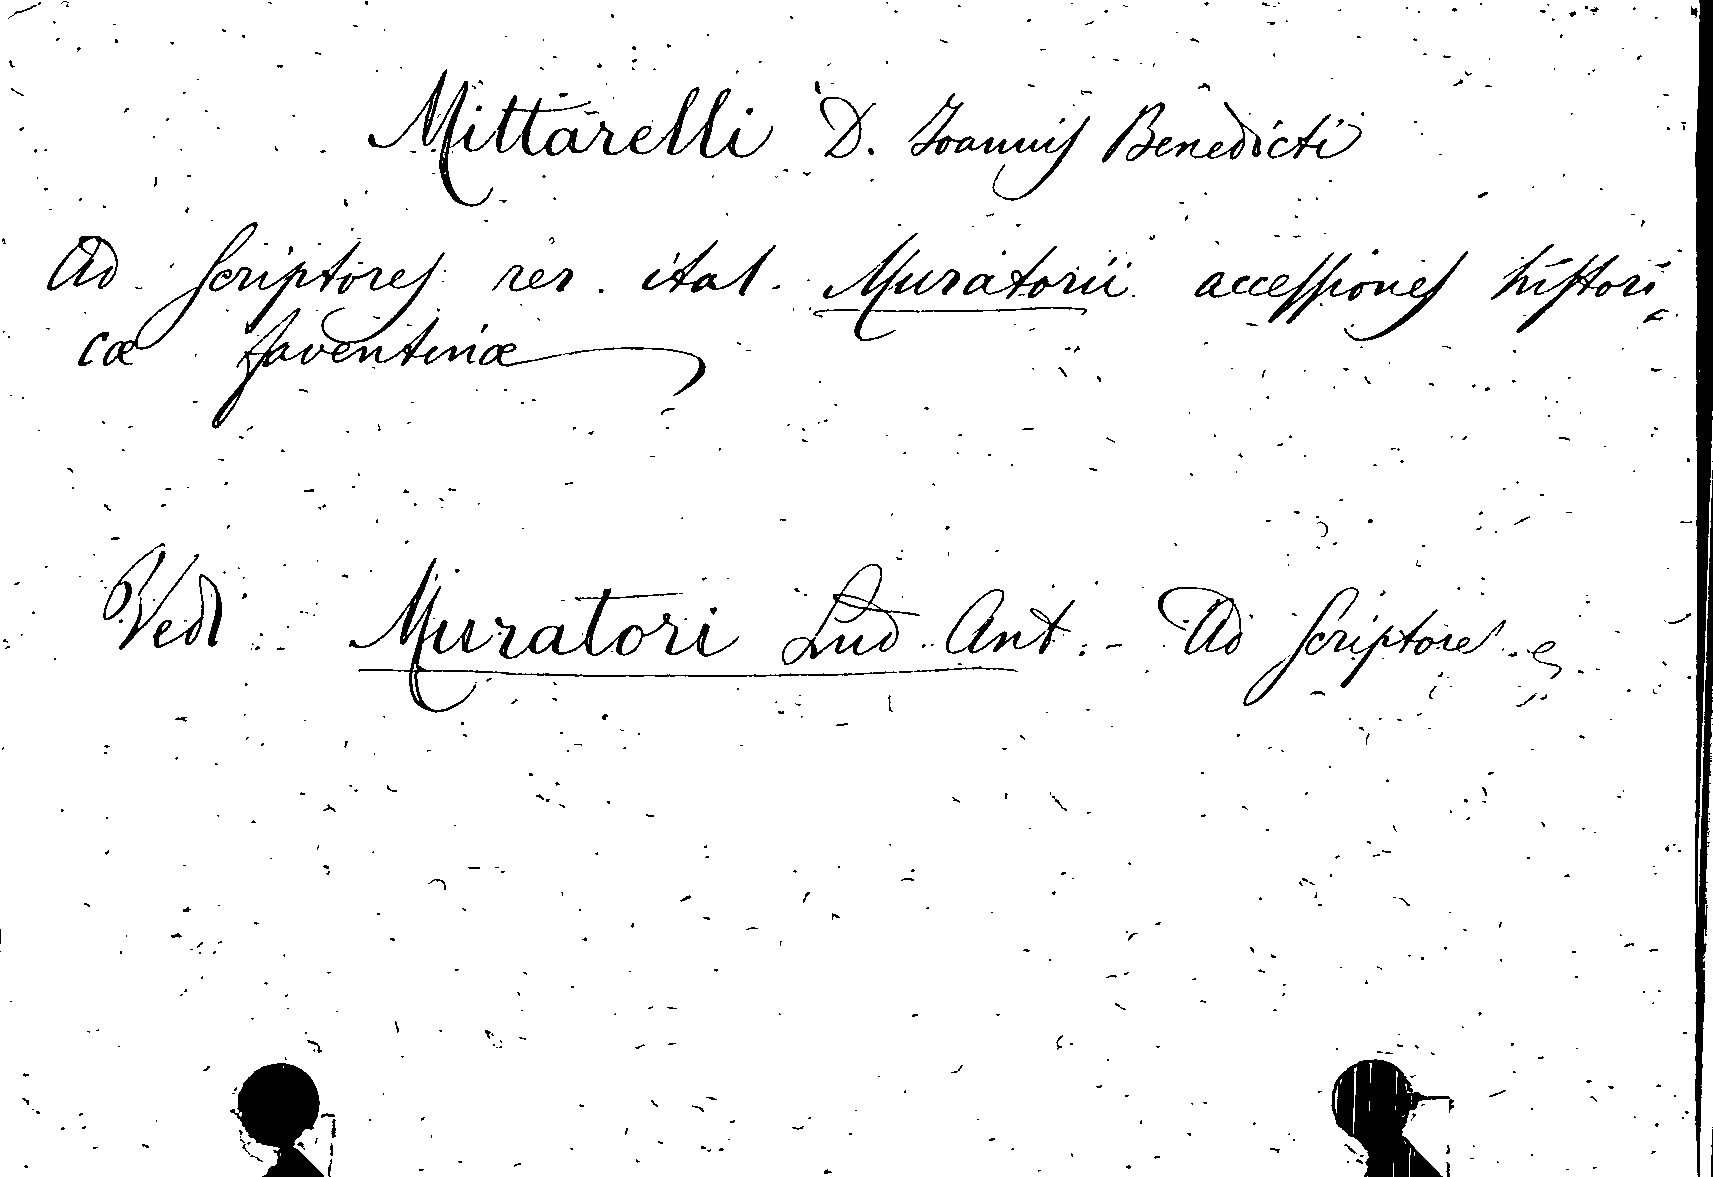 Mittarelli D. Joannis Benedicti
Ad Scriptores rer. ital. Muratorii accessiones histori
cæ faventinæ
Vedi Muratori Lud. Ant. - Ad Scriptores